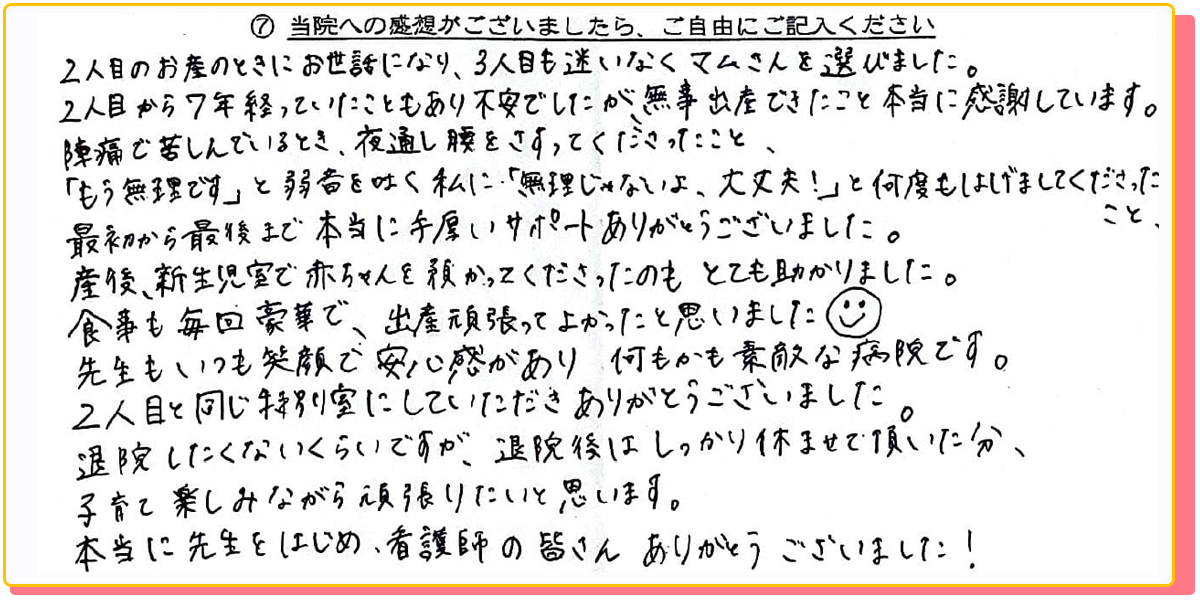 ⑦ 当院への感想がございましたら、ご自由にご記入ください
2人目のお産のときにお世話になり、3人目も迷いなくマムさんを選びました。
2人目から7年経っていたこともあり不安でしたが、無事出産できたこと本当に感謝しています。
陣痛で苦しんでいるとき、夜通し腰をさすってくださったこと、
「もう無理です」と弱音を吐く私に「無理じゃないよ、大丈夫!」と何度もはげましてくださった
こと、
最初から最後まで本当に手厚いサポートありがとうございました。
産後、新生児室で赤ちゃんを預かってくださったのもとても助かりました。
食事も毎回豪華で、出産頑張ってよかったと思いました☺
先生もいつも笑顔で安心感があり何もかも素敵な病院です。
2人目と同じ特別室にしていただきありがとうございました。
退院したくないくらいですが、退院後はしっかり休ませて頂いた分、
子育て楽しみながら頑張りたいと思います。
本当に先生をはじめ、看護師の皆さんありがとうございました!